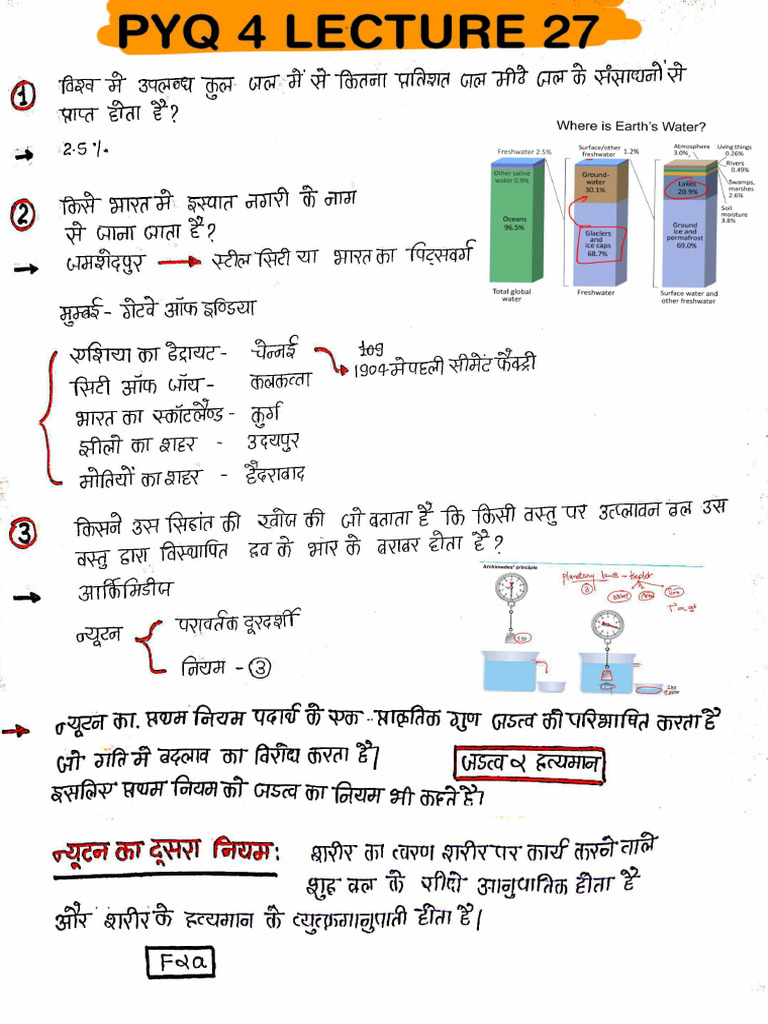 PYQ 4 LECTURE 27
① विश्व मे उपलब्ध कुल जल में से कितना प्रतिशत जल मीठे जल के संसाधनो से
प्राप्त होता है?
→ 2.5%.
Where is Earth's Water?
Freshwater 2.5%
Other saline
water 0.9%
Oceans
96.5%
Total global
water
Surface/other
freshwater 1.2%
Ground-
water
30.1%
Glaciers
and
ice caps
68.7%
Freshwater
Atmosphere
3.0%
Living things
0.26%
Rivers
0.49%
Lakes
20.9%
Swamps,
marshes
2.6%
Soil
moisture
3.8%
Ground
ice and
permafrost
69.0%
Surface water and
other freshwater
② किसे भारत मे इस्पात नगरी के नाम
से जाना जाता है?
→ जमशेदपुर → स्टील सिटी या भारत का पिट्सवर्ग
मुम्बई - गेटवे ऑफ इण्डिया
एशिया का डेट्रायट - चेन्नई
1904 मे पहली सीमेंट फैक्ट्री
सिटी ऑफ जॉय - कलकत्ता
भारत का स्कॉटलैण्ड - कुर्ग
झीलो का शहर - उदयपुर
मोतियों का शहर - हैदराबाद
③ किसने उस सिद्धांत की खोज की जो बताता है कि किसी वस्तु पर उत्प्लावन बल उस
वस्तु द्वारा विस्थापित द्रव के भार के बराबर होता है?
→ आर्किमिडीज
Archimedes' principle
planetary laws - kepler
③
न्यूटन
परावर्तक दूरदर्शी
नियम - ③
→ न्यूटन का प्रथम नियम पदार्थ के एक प्राकृतिक गुण जडत्व को परिभाषित करता है
जो गति मे बदलाव का विरोध करता है।
जडत्व ∝ द्रव्यमान
इसलिए प्रथम नियम को जडत्व का नियम भी कहते है।
न्यूटन का दूसरा नियम: शरीर का त्वरण शरीर पर कार्य करने वाले
शुद्ध बल के सीधे आनुपातिक होता है
और शरीर के द्रव्यमान के व्युत्क्रमानुपाती होता है।
F∝a